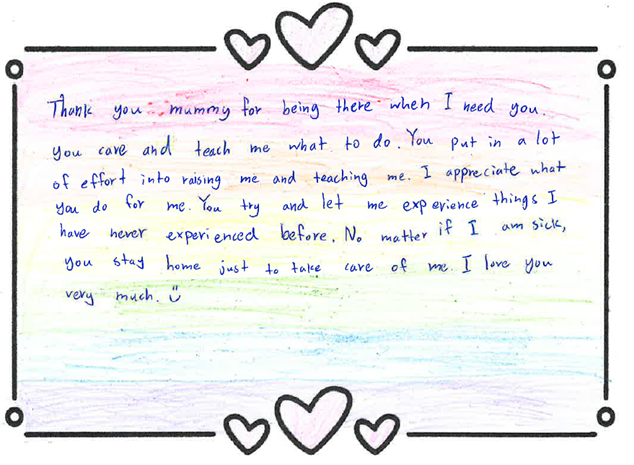 Thank you mummy for being there when I need you.
you care and teach me what to do. You put in a lot
of effort into raising me and teaching me. I appreciate what
you do for me. You try and let me experience things I
have never experienced before. No matter if I am sick,
you stay home just to take care of me. I love you
very much. ☺